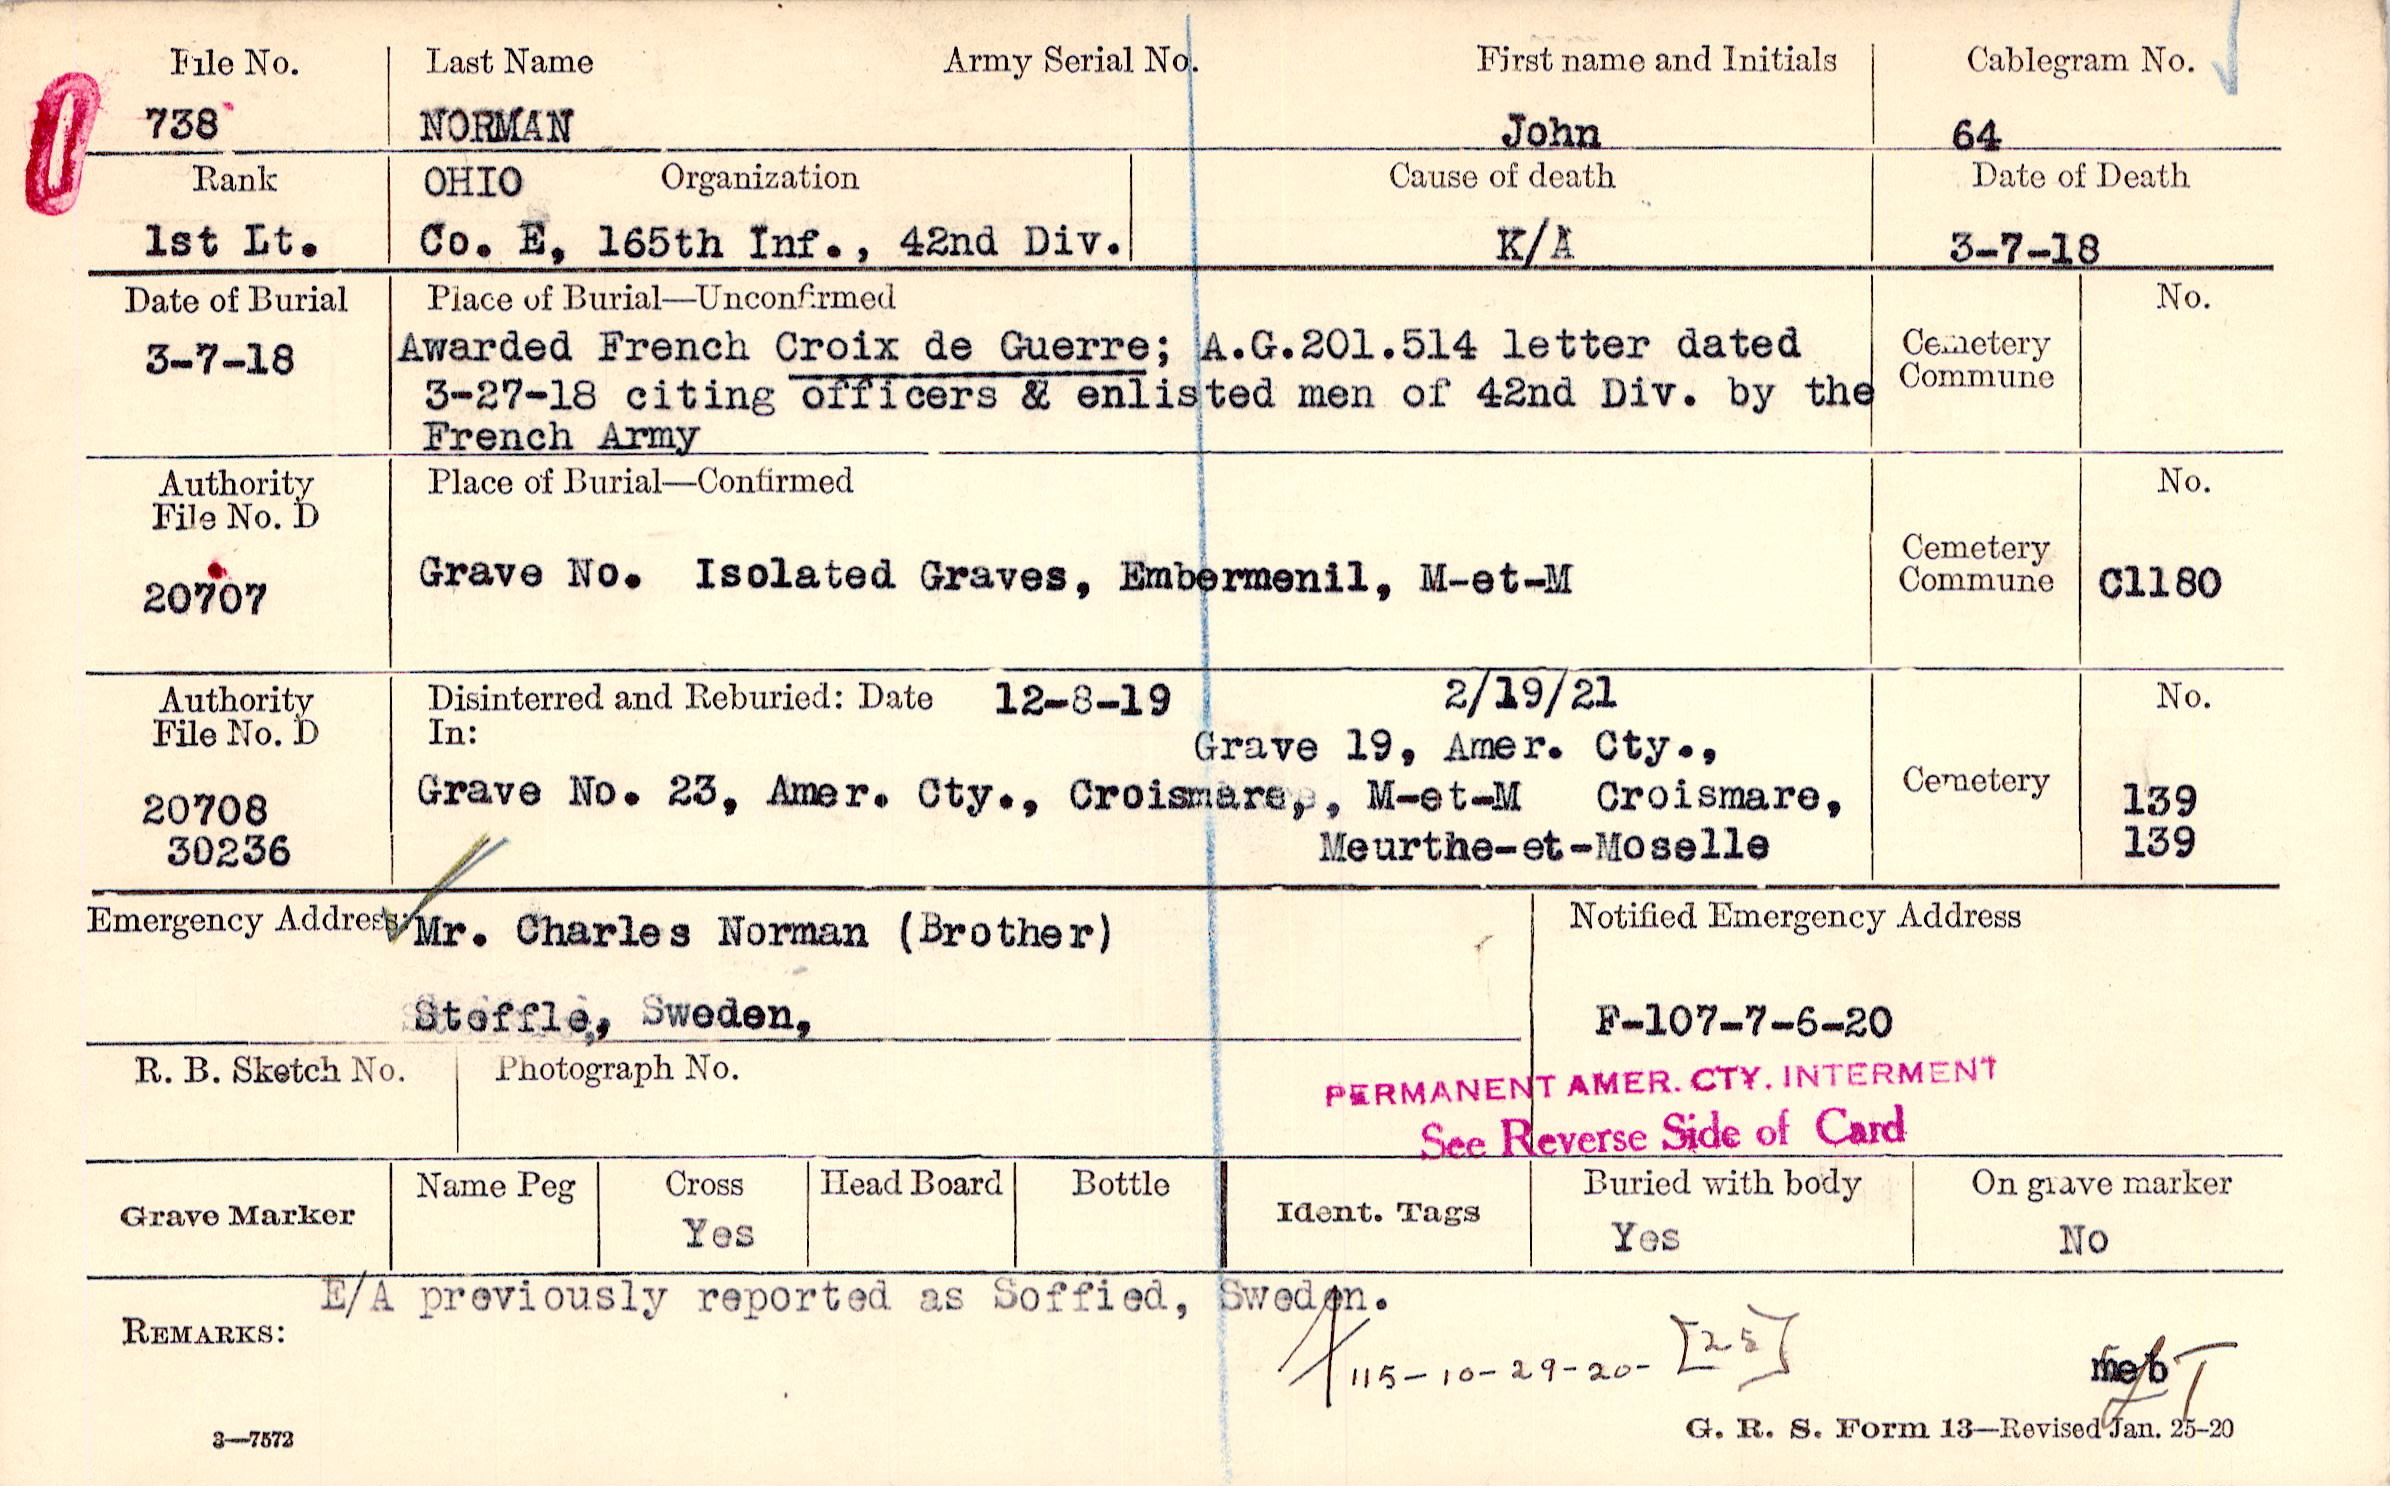 File No. Last Name Army Serial No. First name and Initials Cablegram No.
738 NORMAN John 64
Rank OHIO Organization Cause of death Date of Death
1st Lt. Co. E, 165th Inf., 42nd Div. K/A 3-7-18
Date of Burial Place of Burial—Unconfirmed No.
3-7-18 Awarded French Croix de Guerre; A.G.201.514 letter dated Cemetery
3-27-18 citing officers & enlisted men of 42nd Div. by the Commune
French Army
Authority Place of Burial—Confirmed No.
File No. D
20707 Grave No. Isolated Graves, Embermenil, M-et-M Cemetery Commune C1180
Authority Disinterred and Reburied: Date 12-8-19 2/19/21 No.
File No. D In:
Grave 19, Amer. Cty.,
20708 Grave No. 23, Amer. Cty., Croismare, M-et-M Croismare, Cemetery 139
30236 Meurthe-et-Moselle 139
Emergency Address: Mr. Charles Norman (Brother) Notified Emergency Address
Steffle, Sweden, F-107-7-6-20
R. B. Sketch No. Photograph No.
PERMANENT AMER. CTY. INTERMENT
See Reverse Side of Card
Grave Marker Name Peg Cross Head Board Bottle Ident. Tags Buried with body On grave marker
Yes Yes No
E/A previously reported as Soffied, Sweden.
REMARKS:
115-10-29-20- [25]
meb
3—7572 G. R. S. Form 13—Revised Jan. 25-20